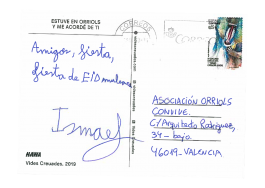 ESTUVE EN ORRIOLS
Y ME ACORDÉ DE TI
Amigos, fiesta,
fiesta de EiD
Ismael
ASOCIACIÓN ORRIOLS
CONVIVE.
C/Arquitecto Rodríguez,
34 - bajo
46019 - VALENCIA
Vides Creuades, 2019